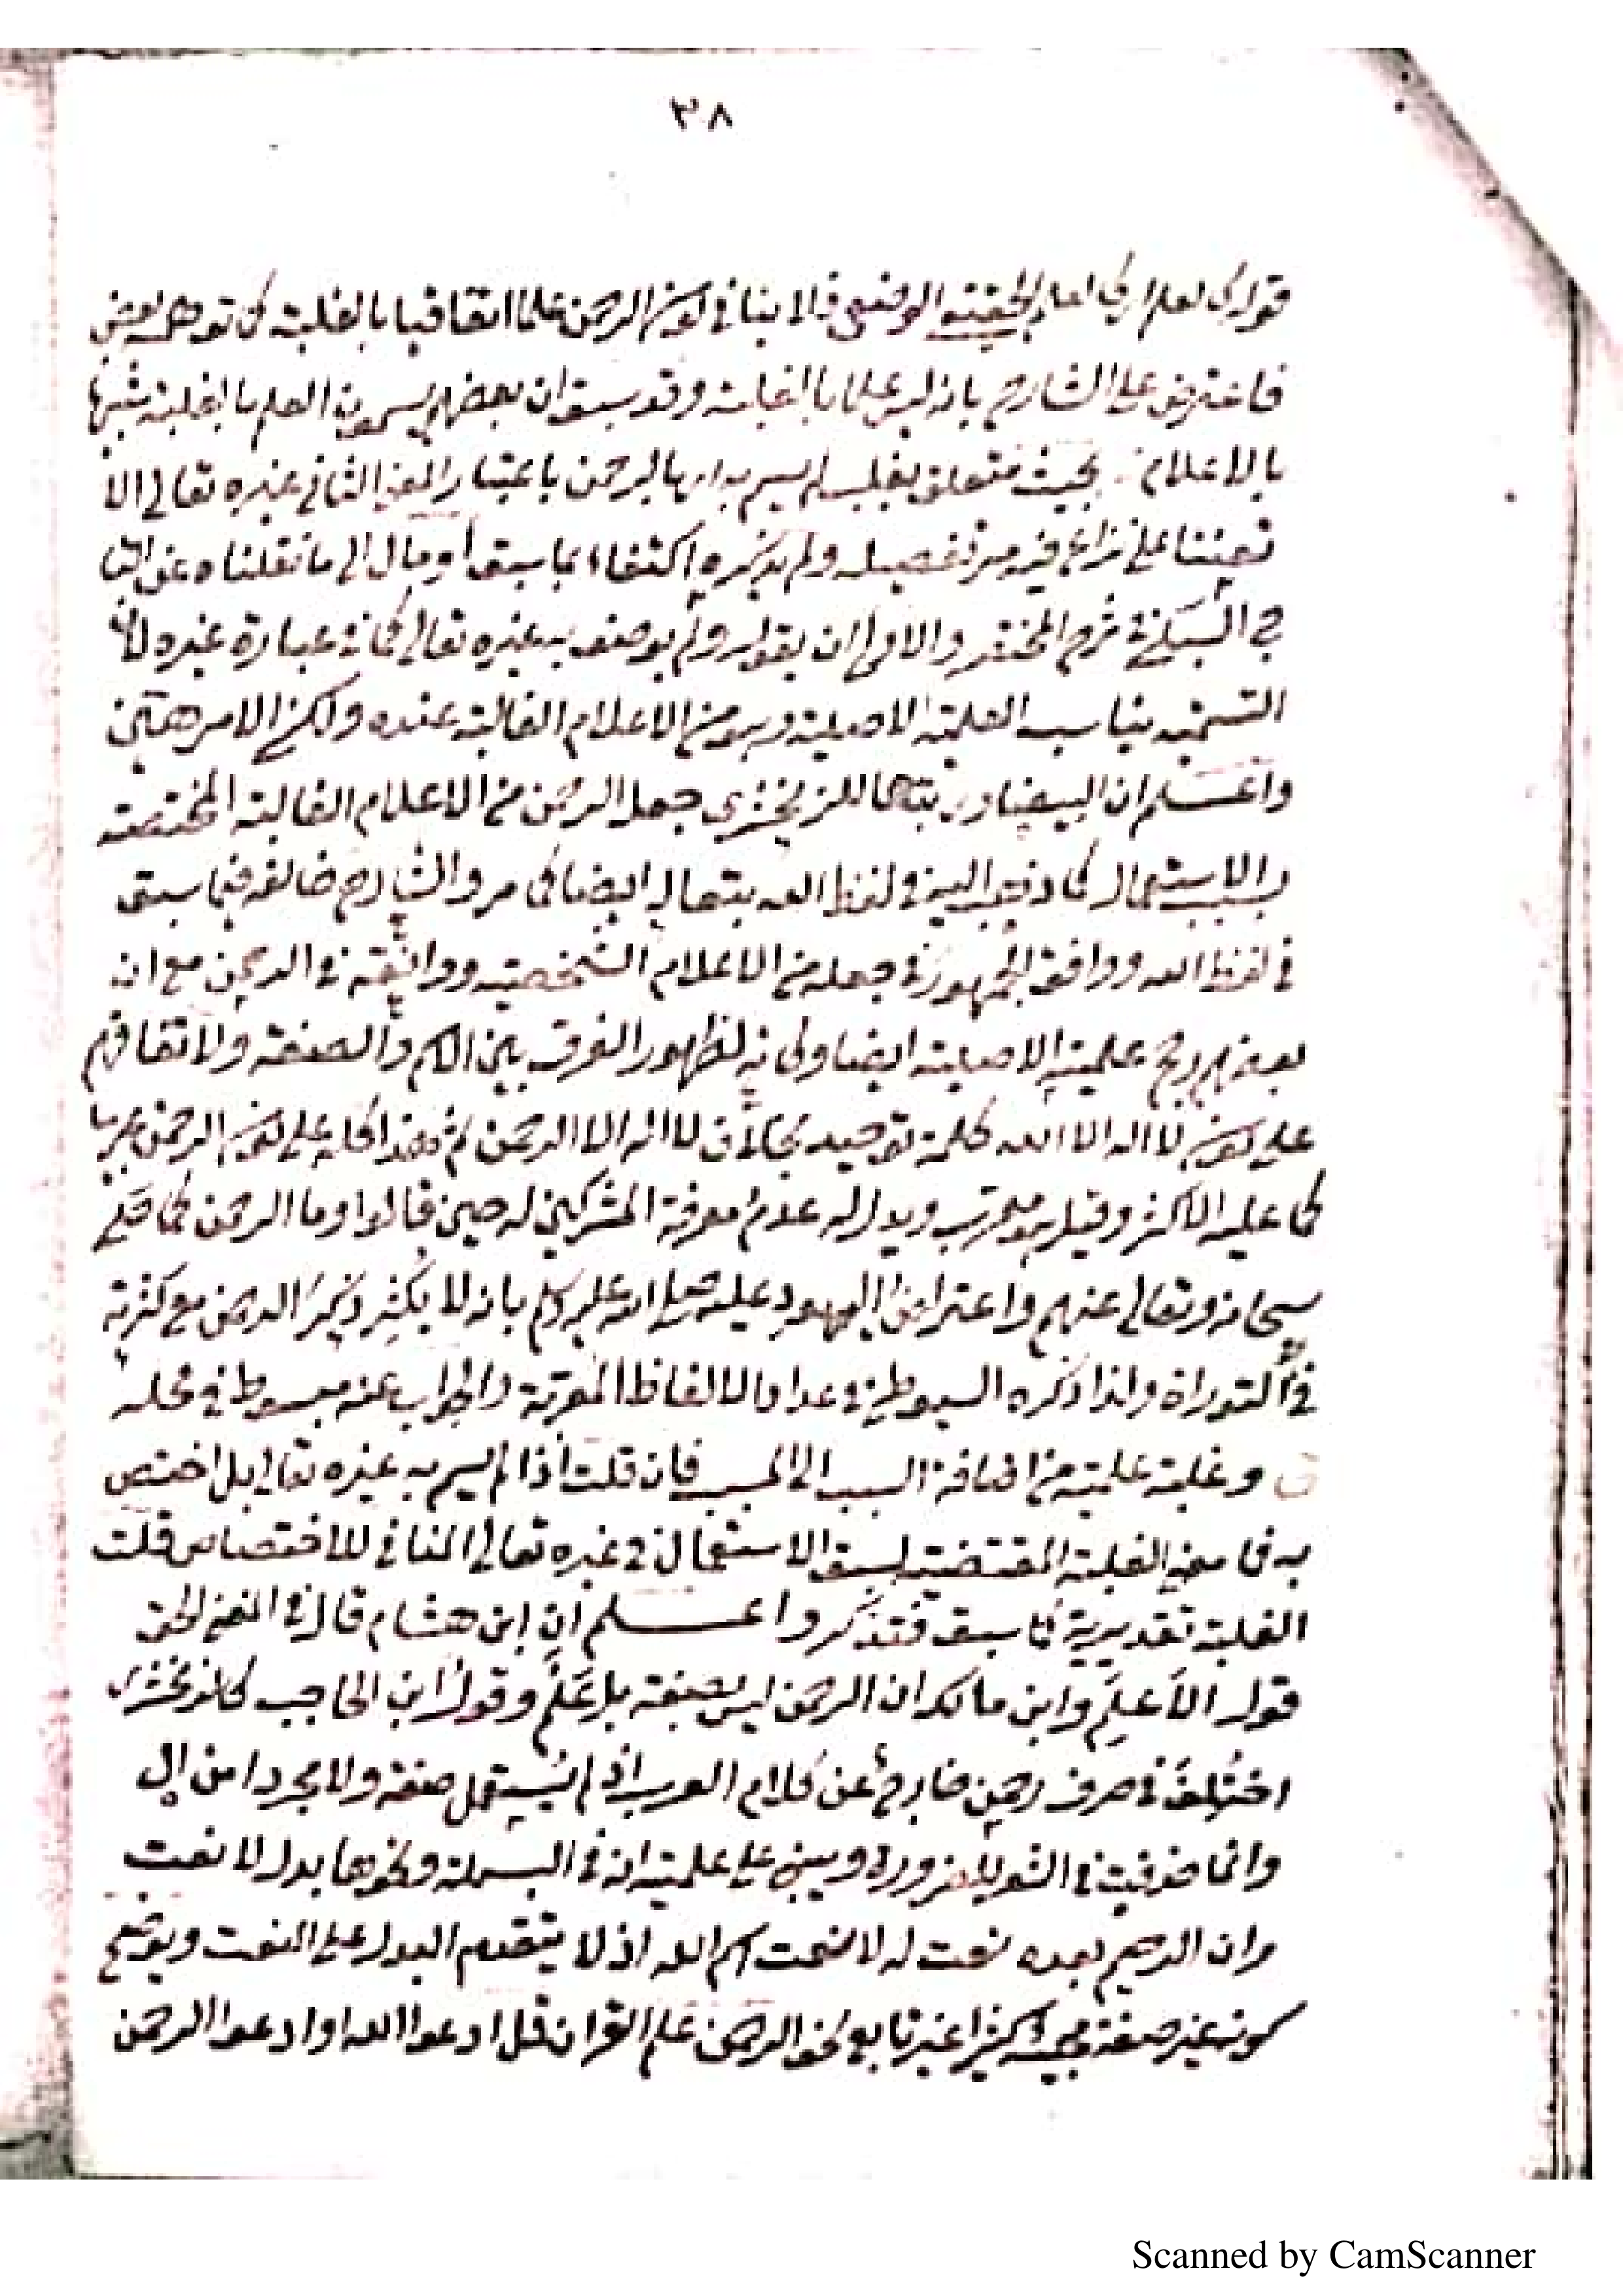 ٣٨
قوله كالعلم اي كالعلم الحقيقي الوضعي فلا ينافي كون الرحمن علما اتفاقيا بالغلبة كما توهمه بعض
فاعترض على الشارح بانه ليس علما بالغلبة وقد سبق ان بعضهم يسمون العلم بالغلبة شبيها
بالاعلام بحيث متعلق بغلب لم يسم به اي بالرحمن باعتبار المعنى الثاني غيره تعالى الا
تعنتا على نزاع فيه مر تفصيله ولم يذكره اكتفاء بما سبق أو مال الى ما نقلناه عن التا
ج السبكي في شرح المختصر والاولى ان يقول ولم يوصف به غيره تعالى كما في عبارة غيره لأن
التسمية يناسب العلمية الاصلية وهو من الاعلام الغالبة عنده ولكن الامر هين
واعلم ان البيضاوي تبعا للزمخشري جعل الرحمن من الاعلام الغالبة المختصة
بالاستعمال كما ذهب اليه في لفظ الله تعالى ايضا كما مر والشارح خالفه فيما سبق
في لفظ الله ووافق الجمهور في جعله من الاعلام الشخصية ووافقه في الرحمن مع ان
بعضهم رجح علميته الاصلية ايضا وكأنه لظهور الفرق بين الاسم والصفة ولاتفاقهم
على كون لا اله الا الله كلمة توحيد بخلاف لا اله الا الرحمن ثم هذا كله على كون الرحمن عربيا
كما عليه الأكثر وقيل هو معرب ويدل له عدم معرفة المشركين له حين قالوا وما الرحمن كما حكى
سبحانه وتعالى عنهم واعتراض اليهود عليه صلى الله عليه وسلم بانه لا يكثر ذكر الرحمن مع كثرته
في التوراة ولذا ذكره السيوطي في عداد الالفاظ المعربة والجواب عنه مبسوط في محله
وغلبة علميته من اضافة السبب الى المسبب فان قلت اذا لم يسم به غيره تعالى بل اختص
به فما معنى الغلبة المقتضية لسبق الاستعمال في غيره تعالى المنافي للاختصاص قلت
الغلبة تقديرية كما سبق فتذكر واعلم أن إبن هشام قال في المغني الحق
قول الأعلم وابن مالك ان الرحمن ليس بصفة بل علم وقول ابن الحاجب كالزمخشري
اختلف في صرف رحمن خارج عن كلام العرب اذ لم يستعمل صفة ولا مجردا من ال
وانما حذفت في الشعر للضرورة وينبني على علميته انه في البسملة ونحوها بدل لا نعت
وان الرحيم بعده نعت له لا نعت اسم الله اذ لا يتقدم البدل على النعت ويوضح
كونه غير صفة مجيئه كثيرا غير تابع نحو الرحمن علم القرآن قل ادعوا الله او ادعوا الرحمن
Scanned by CamScanner